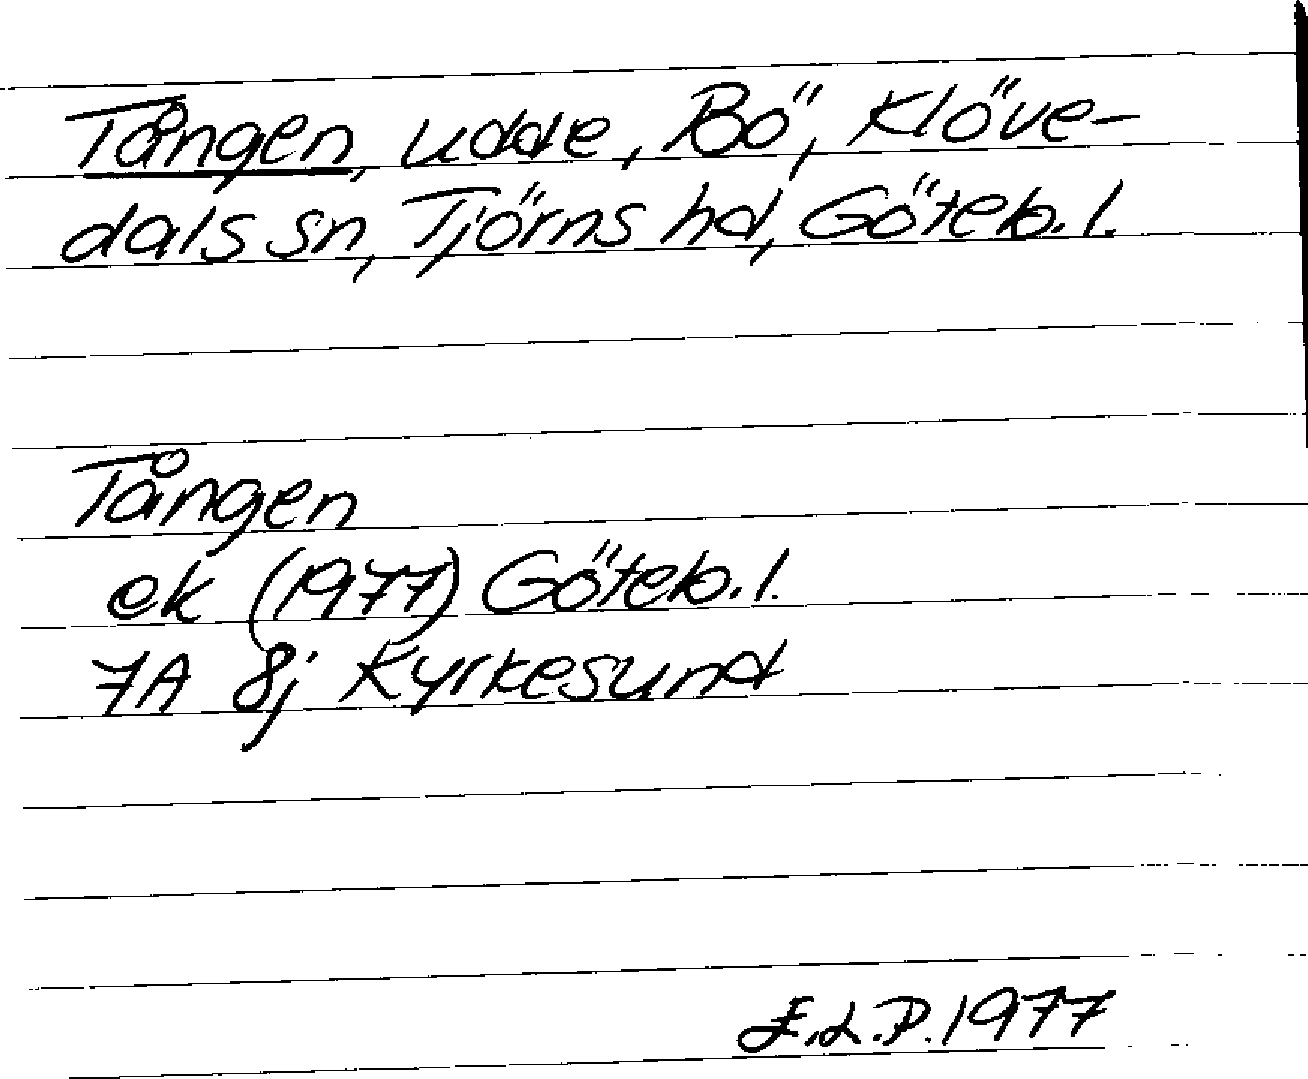 Tången, udde, Bö, Klöve-
dals sn, Tjörns hd, Göteb. l.
Tången
ek (1977) Göteb. l.
7A 8j Kyrkesund
E.L.P. 1977